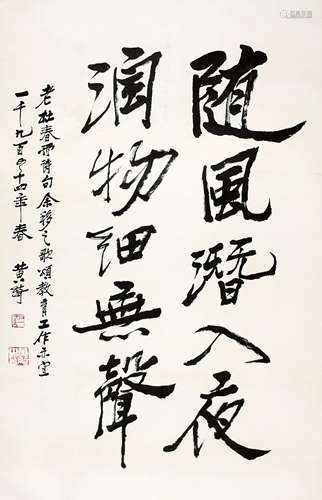 随風潛入夜
润物细無聲
老杜春雨诗句余移之歌頌教育工作亦宜
一千九百八十四年春 黄